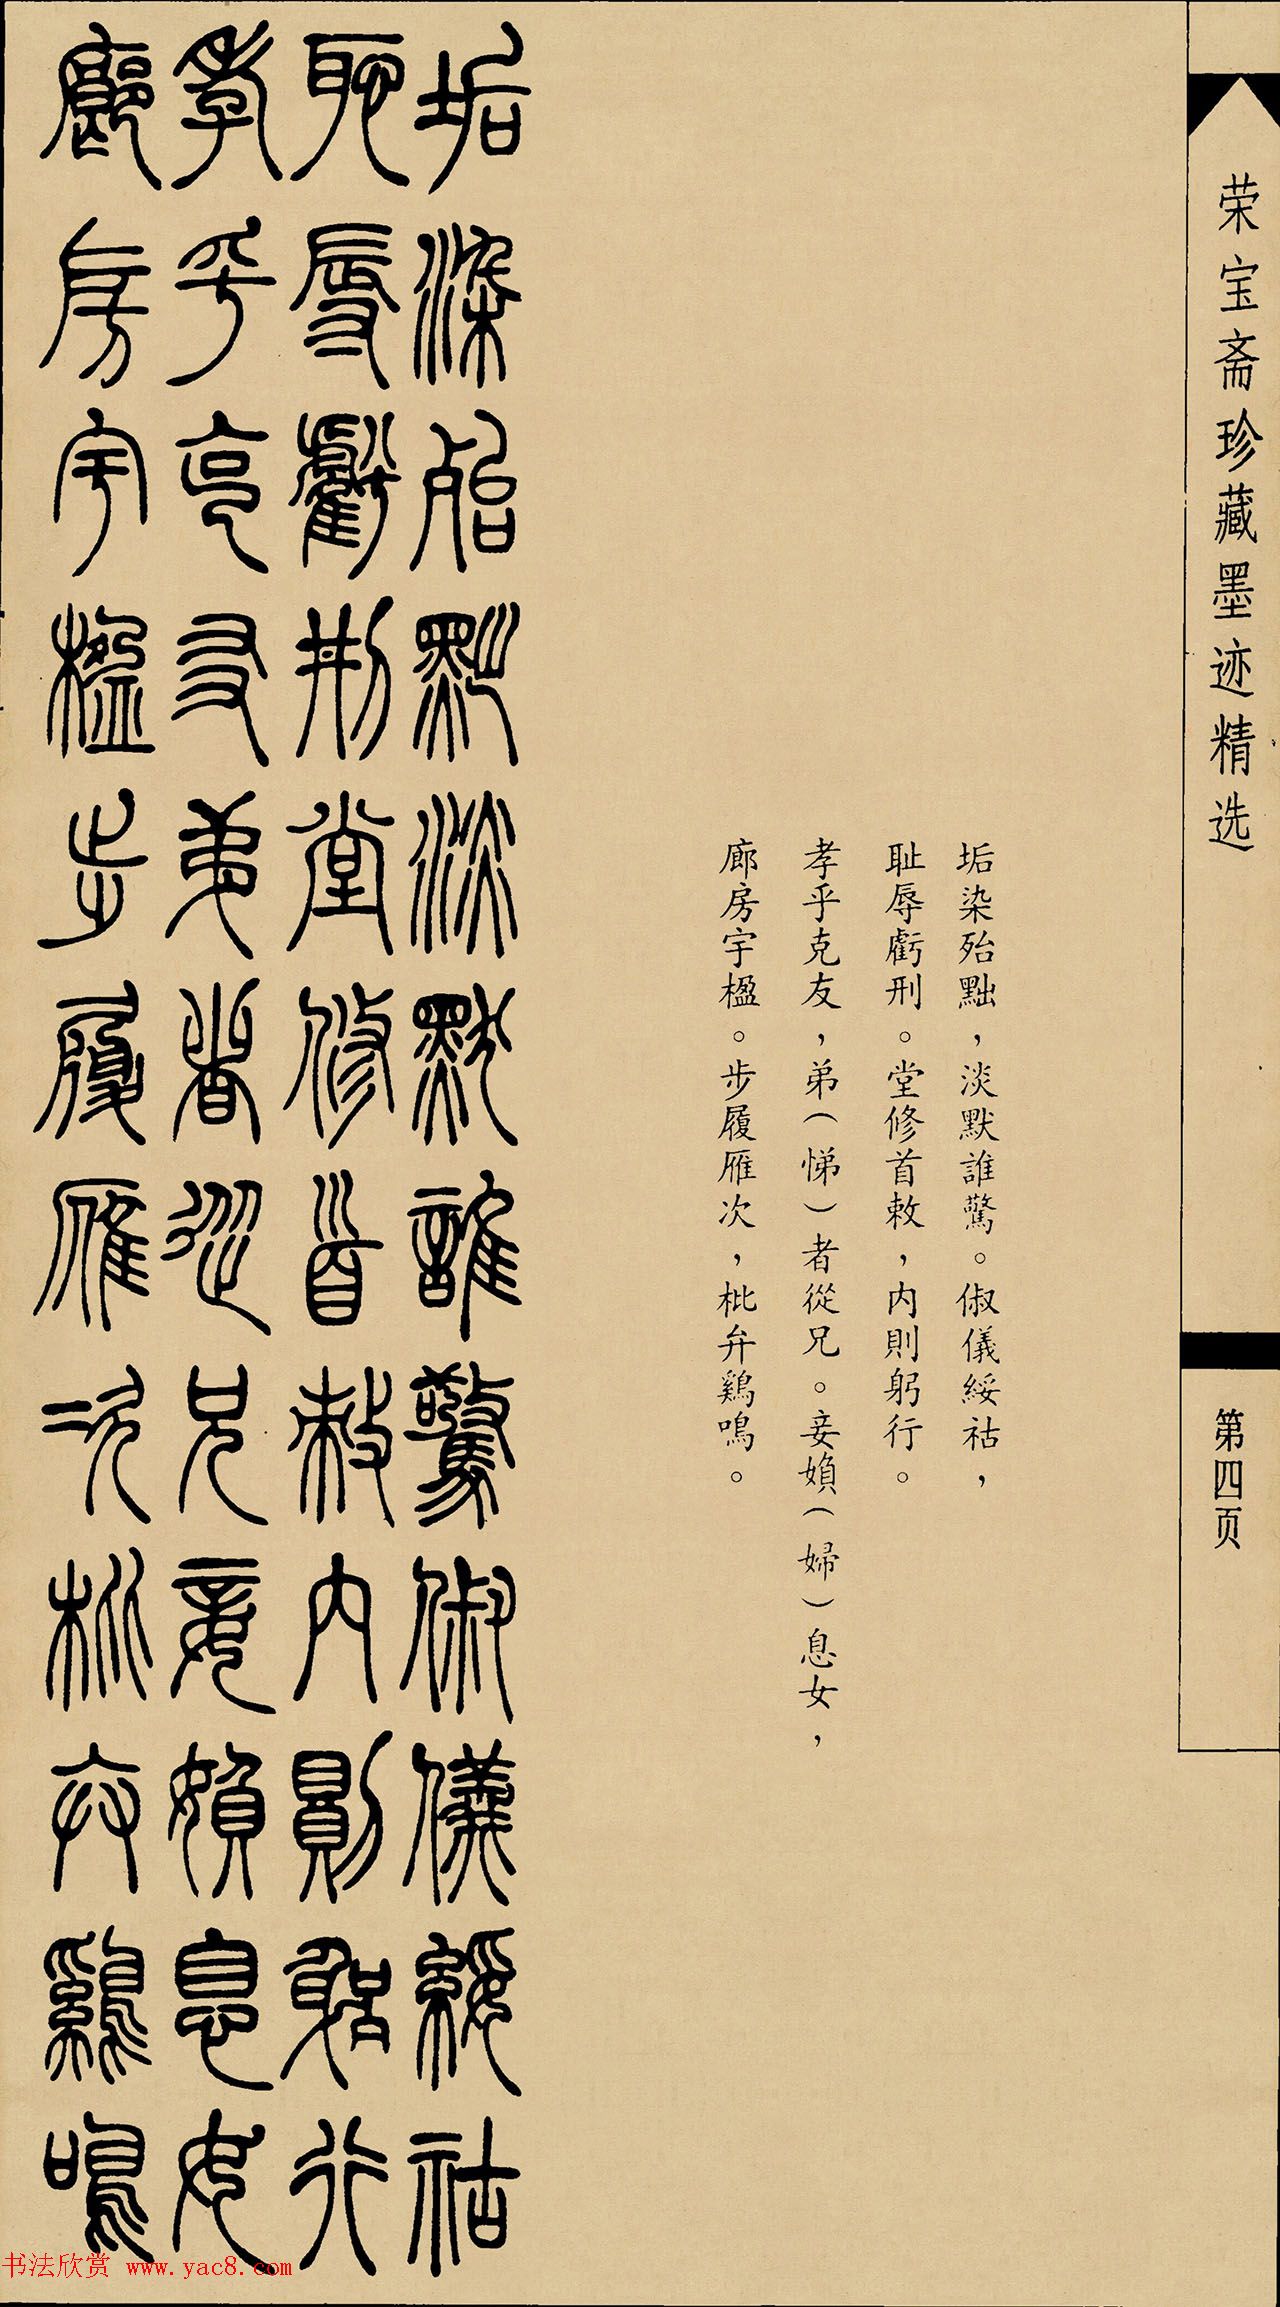 荣宝斋珍藏墨迹精选
第四页
垢染殆黜，淡默誰驚。俶儀綏祜，
耻辱虧刑。堂修首敕，内則躬行。
孝乎克友，弟（悌）者從兄。妾媍（婦）息女，
廊房宇楹。步履雁次，枇弁鷄鳴。
垢染殆黜淡默誰驚俶儀綏祜
耻辱虧刑堂修首敕内則躬行
孝乎克友弟者從兄妾媍息女
廊房宇楹步履雁次枇弁鷄鳴
书法欣赏 www.yac8.com